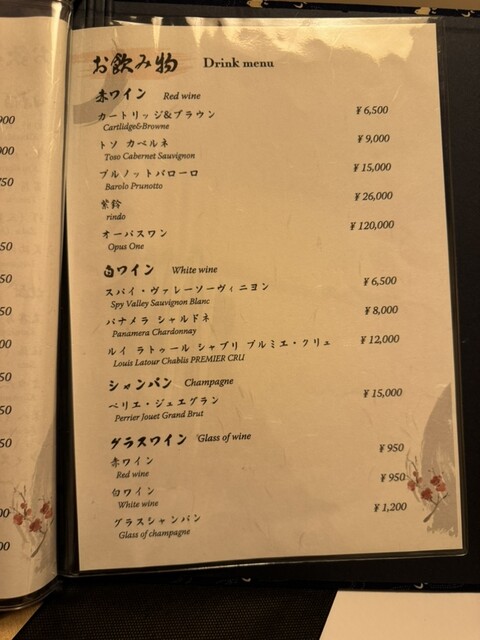 お飲み物 Drink menu
赤ワイン Red wine
カートリッジ&ブラウン ¥6,500
Cartlidge&Browne
トソ カベルネ ¥9,000
Toso Cabernet Sauvignon
ブルノットバローロ ¥15,000
Barolo Prunotto
紫鈴 ¥26,000
rindo
オーパスワン ¥120,000
Opus One
白ワイン White wine
スパイ・ヴァレーソーヴィニヨン ¥6,500
Spy Valley Sauvignon Blanc
パナメラ シャルドネ ¥8,000
Panamera Chardonnay
ルイ ラトゥール シャブリ プルミエ・クリュ ¥12,000
Louis Latour Chablis PREMIER CRU
シャンパン Champagne
ペリエ・ジュエグラン ¥15,000
Perrier Jouet Grand Brut
グラスワイン Glass of wine
赤ワイン ¥950
Red wine
白ワイン ¥950
White wine
グラスシャンパン ¥1,200
Glass of champagne